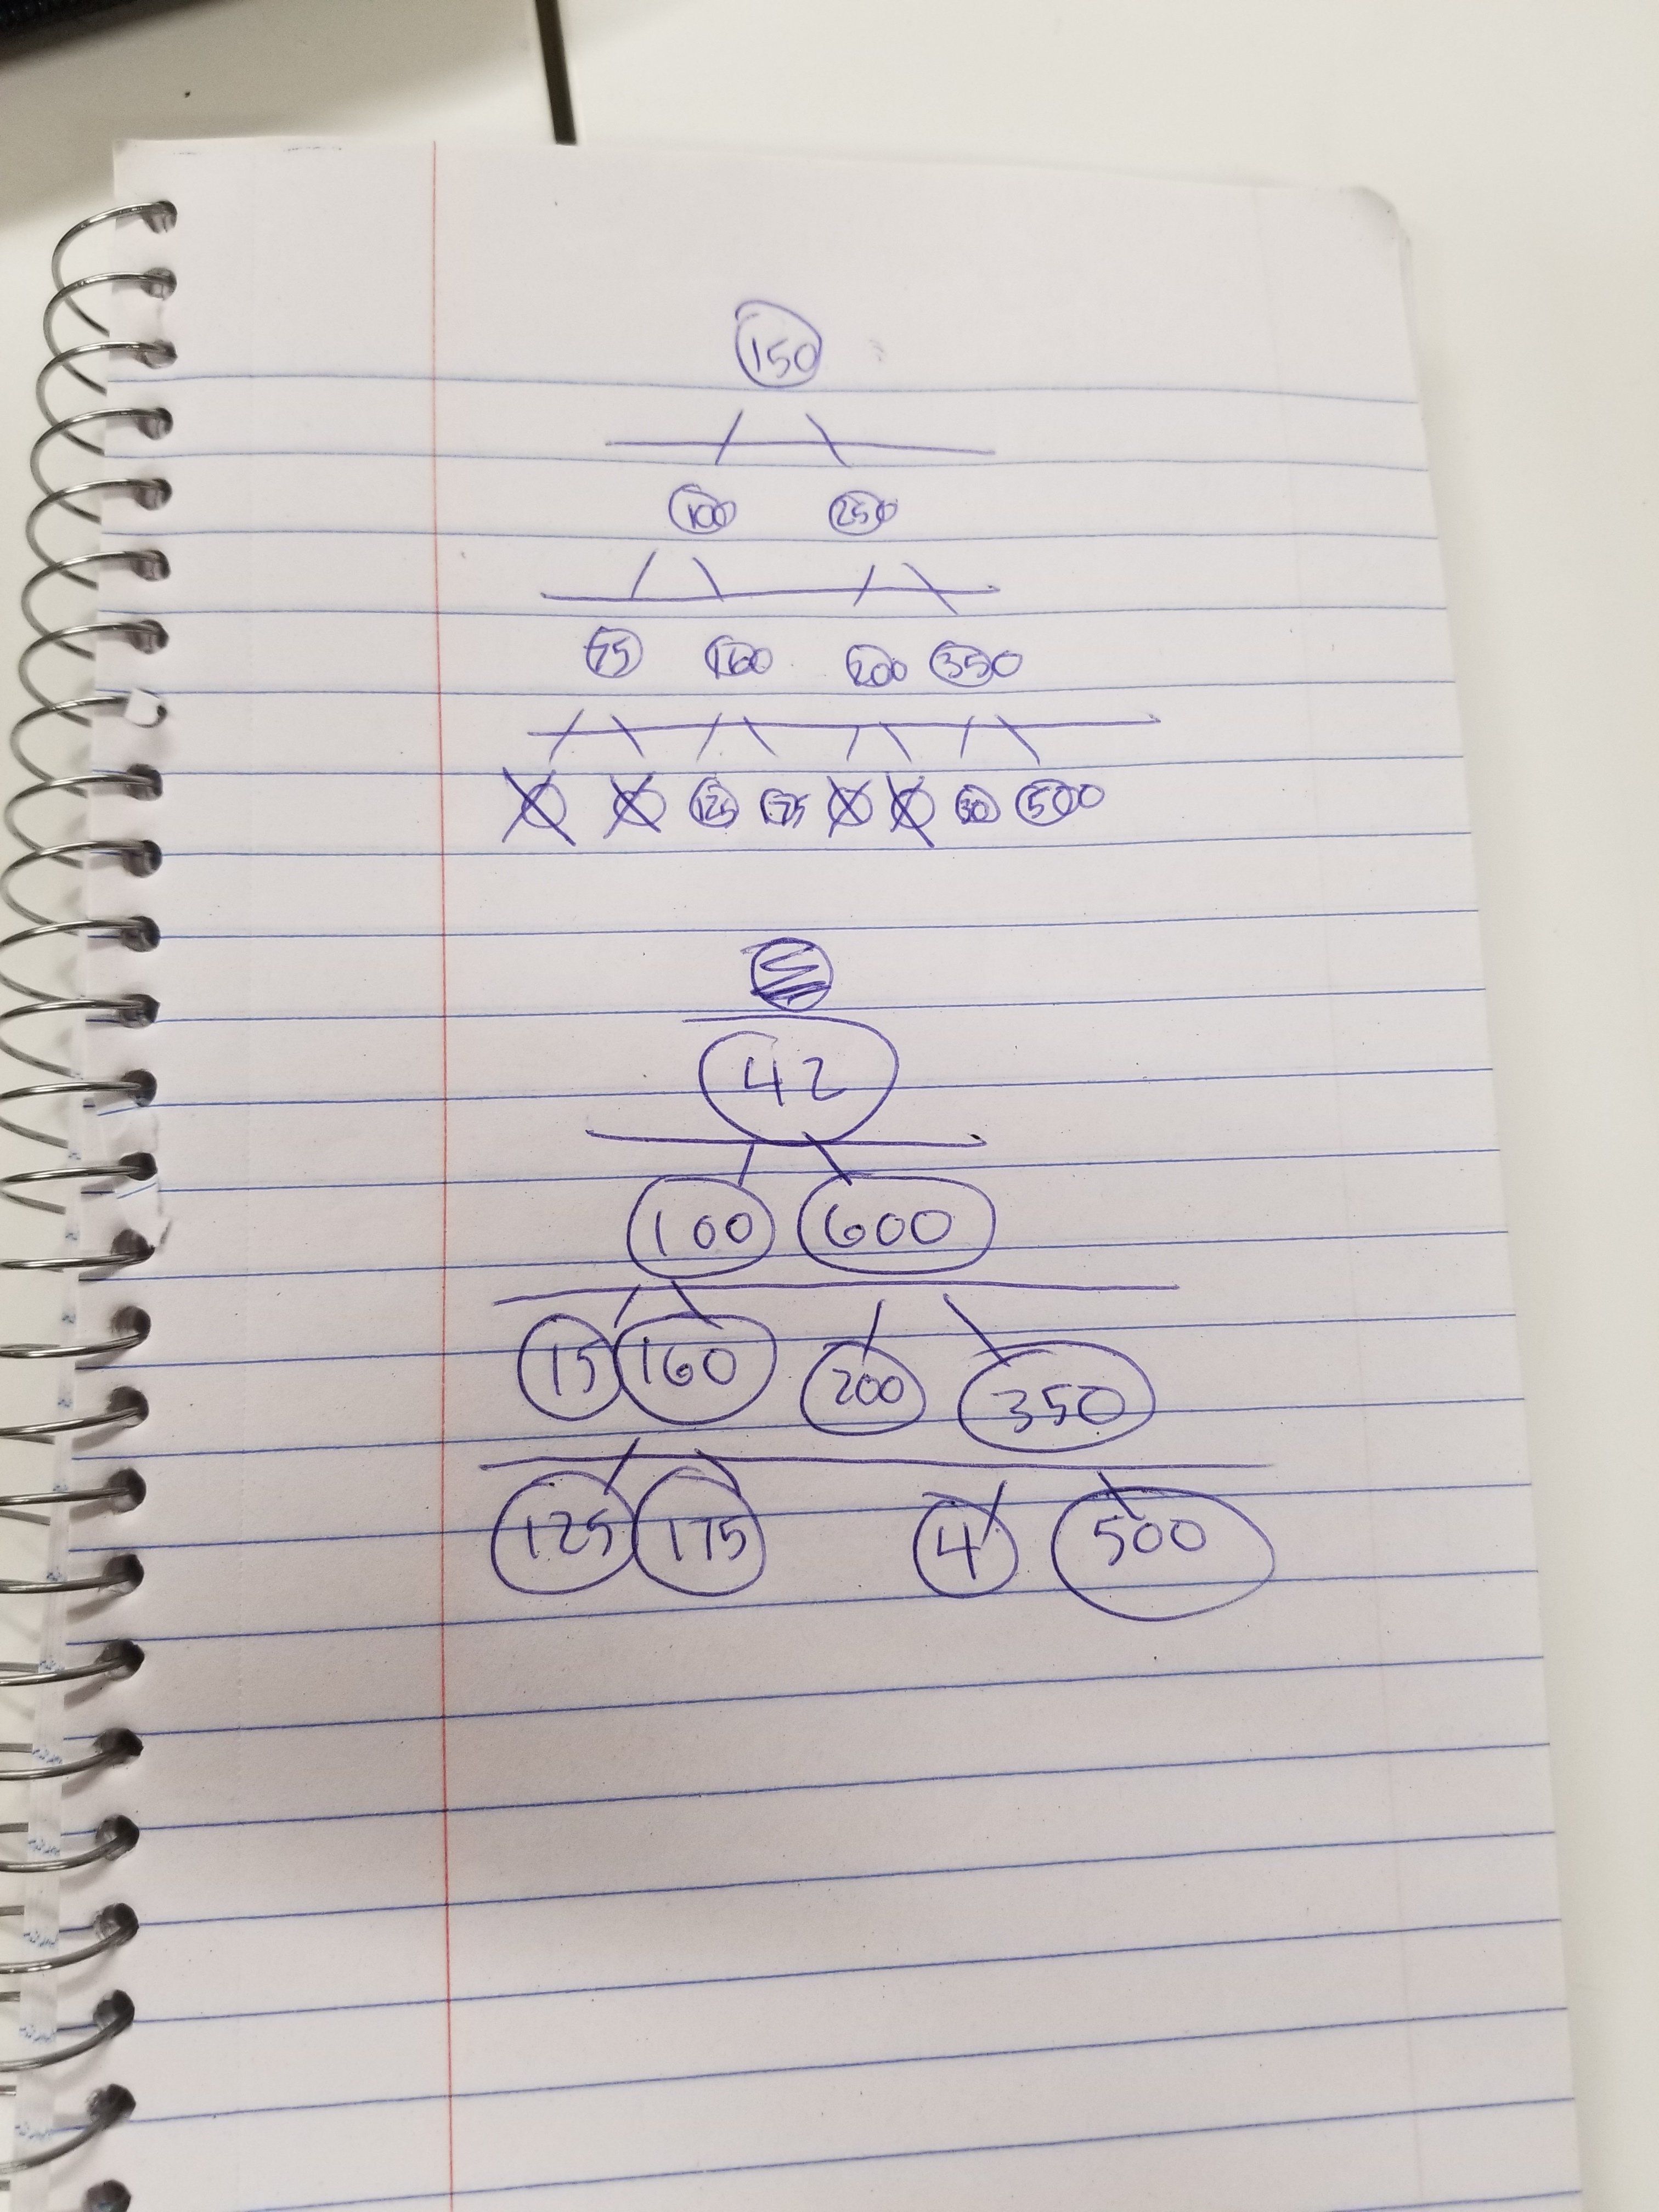 150
100 250
75 160 200 350
125 175 500
42
100 600
15 160 200 350
125 175 4 500